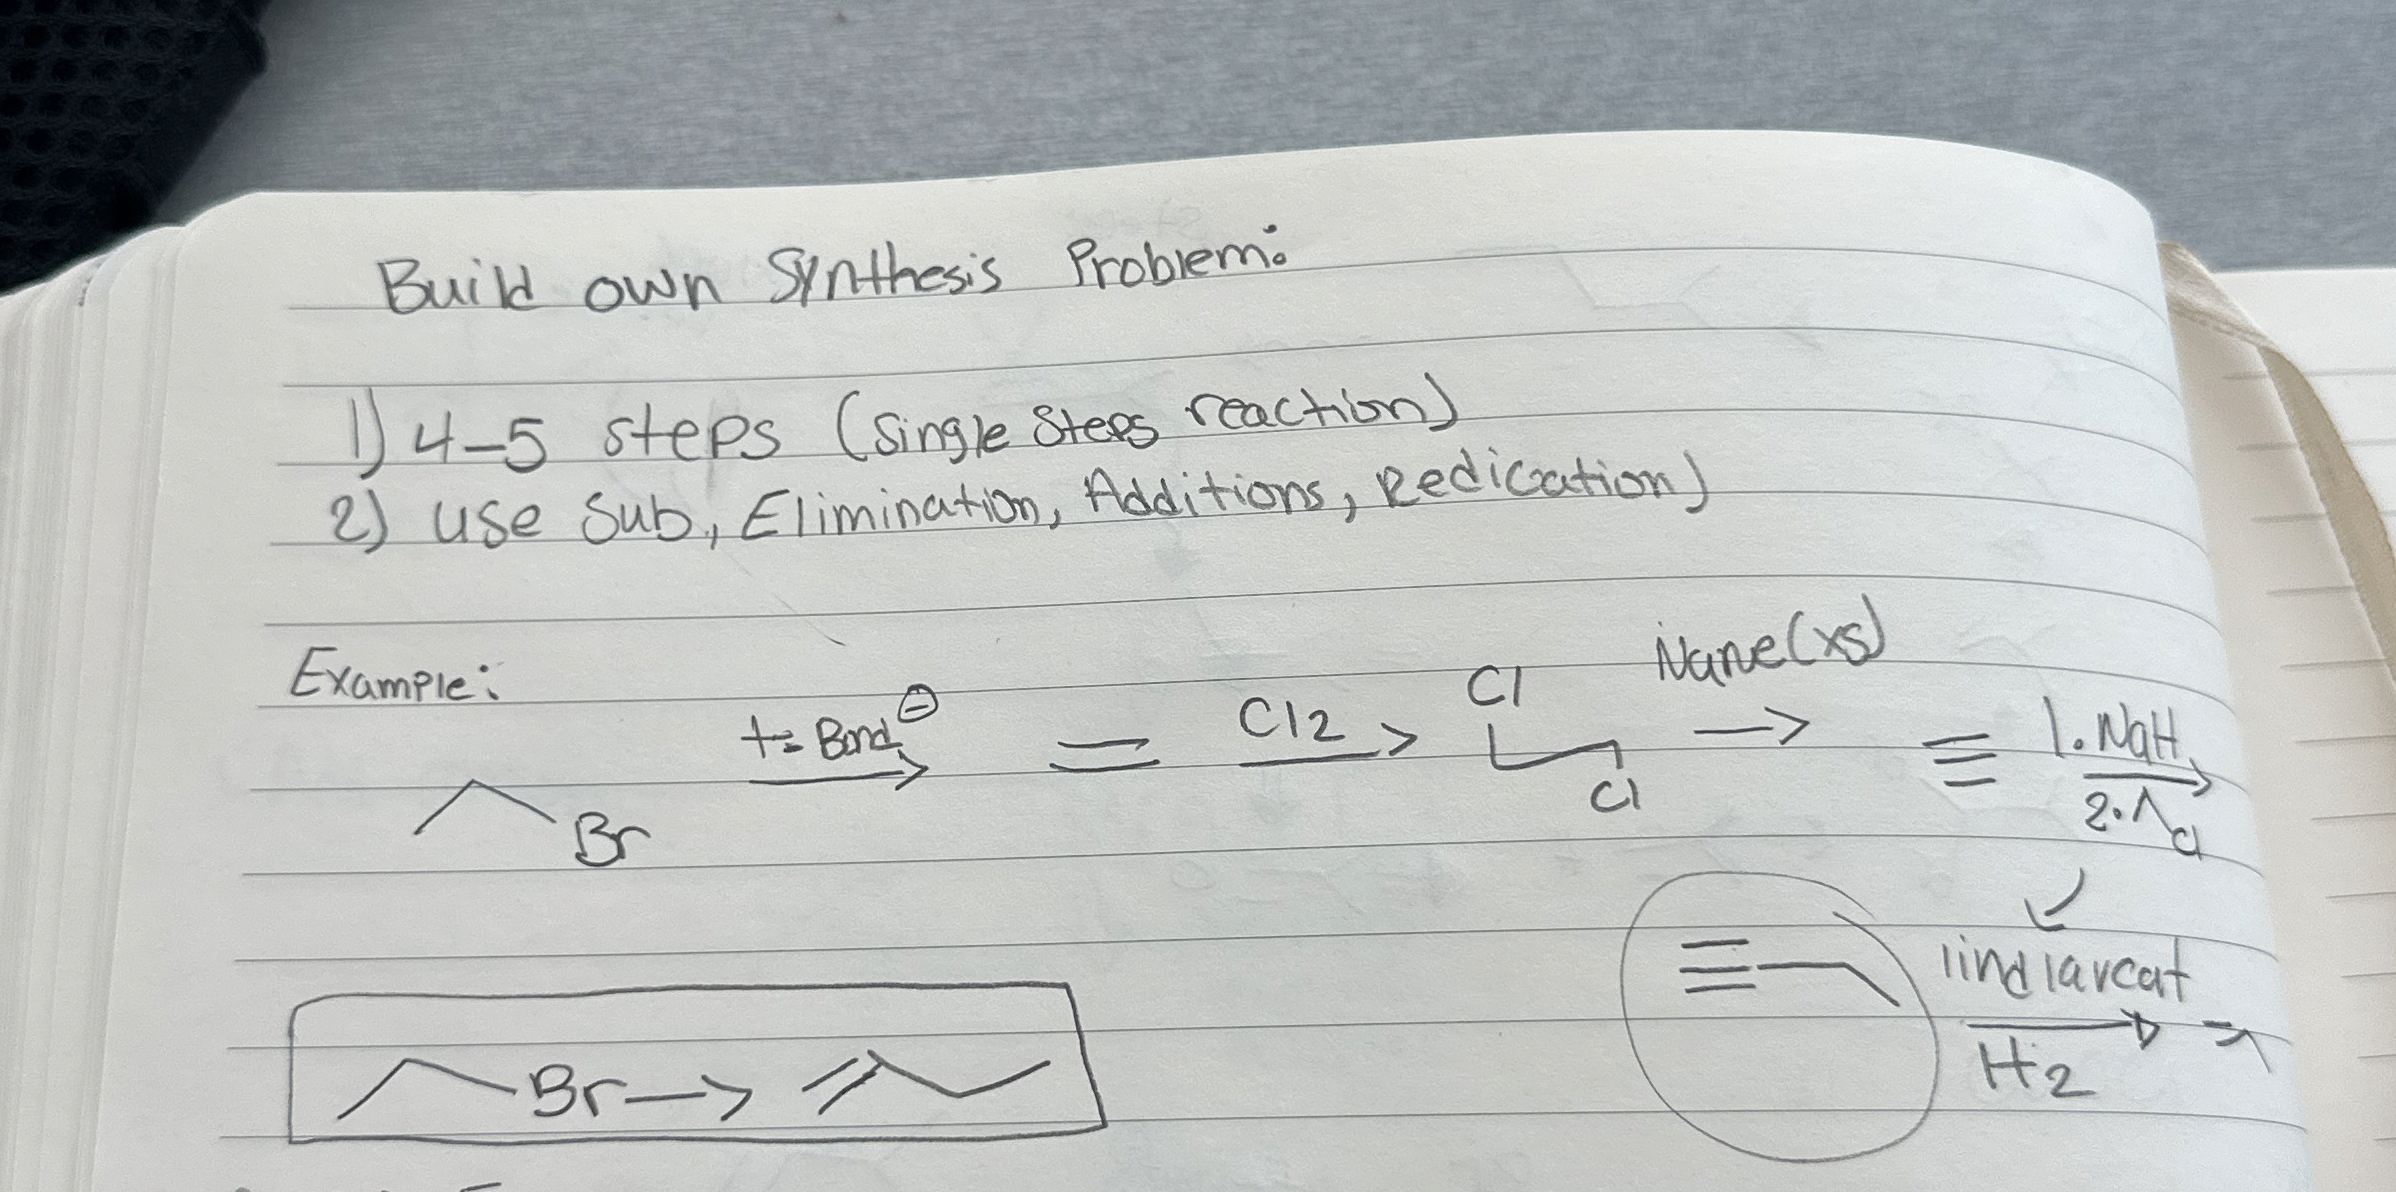 Build own Synthesis Problem:
1) 4-5 steps (Single Steps reaction)
2) use Sub., Elimination, Additions, Redication)
Example:
Br
Cl2
Cl
Cl
(xs)
1. NaH
2. Cl
lindlarcat
H2
Br